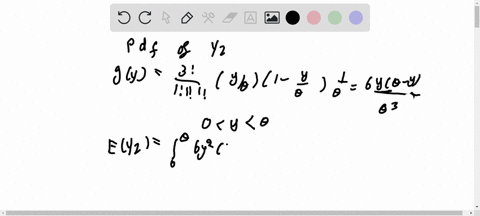 Pdf of Y2
g(y) = 3!/(1!1!1!) (y/θ)(1 - y/θ) 1/θ = 6y(θ-y)/θ^3
0 < y < θ
E(Y2) = ∫_0^θ 6y^2 (